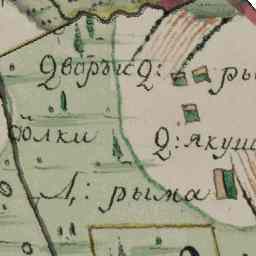 Дворыс Д: ры
олки Д: якуш
Л: рыма